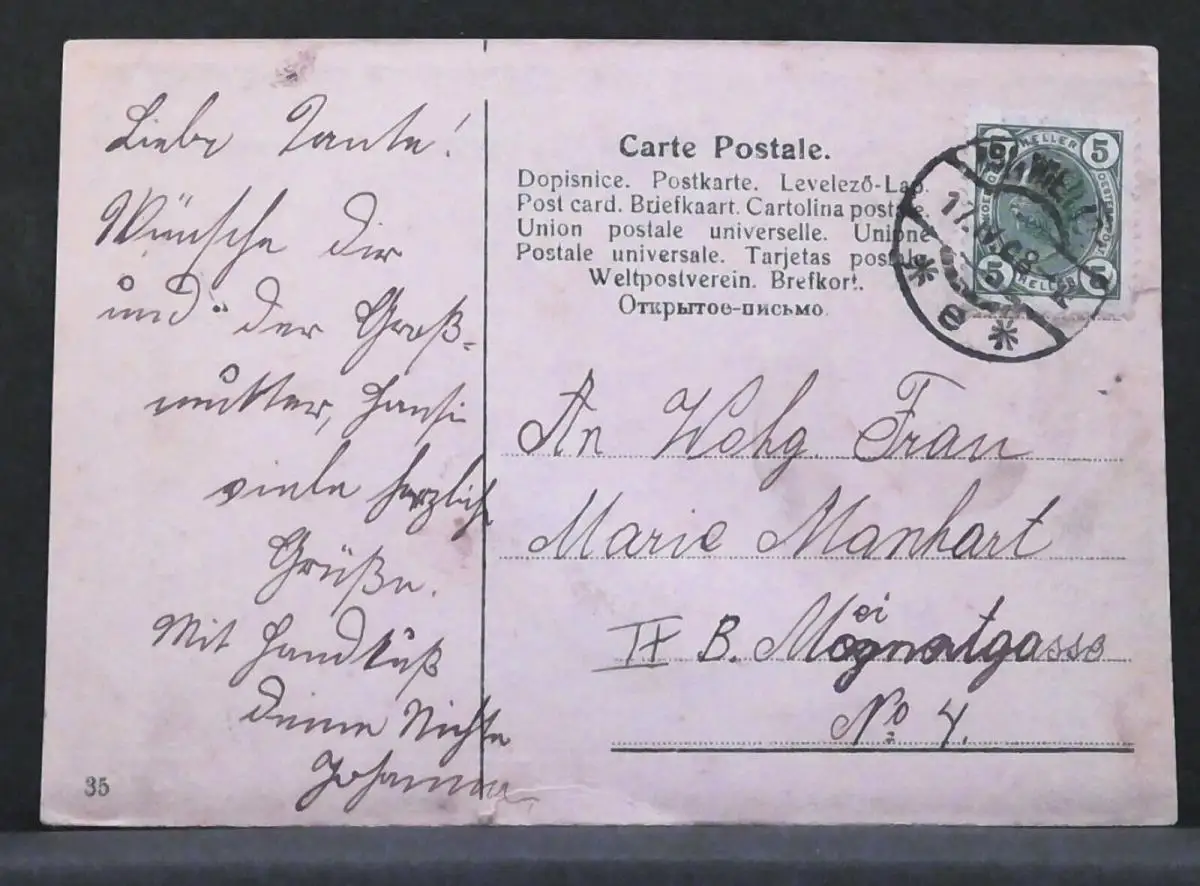 Liebe Tante!
Wünsche Dir
und der Groß-
mutter, Hansi
viele herzliche
Grüße.
Mit Handkuß
Deine Nichte
Johanna
35
Carte Postale.
Dopisnice. Postkarte. Levelező-Lap.
Post card. Briefkaart. Cartolina postale.
Union postale universelle. Unione
Postale universale. Tarjetas postale.
Weltpostverein. Brefkort.
Открытое-письмо.
5 HELLER 5
5 HELLER 5
WIEN
17.
* e *
An Wohg. Frau
Marie Manhart
B.
No 4.